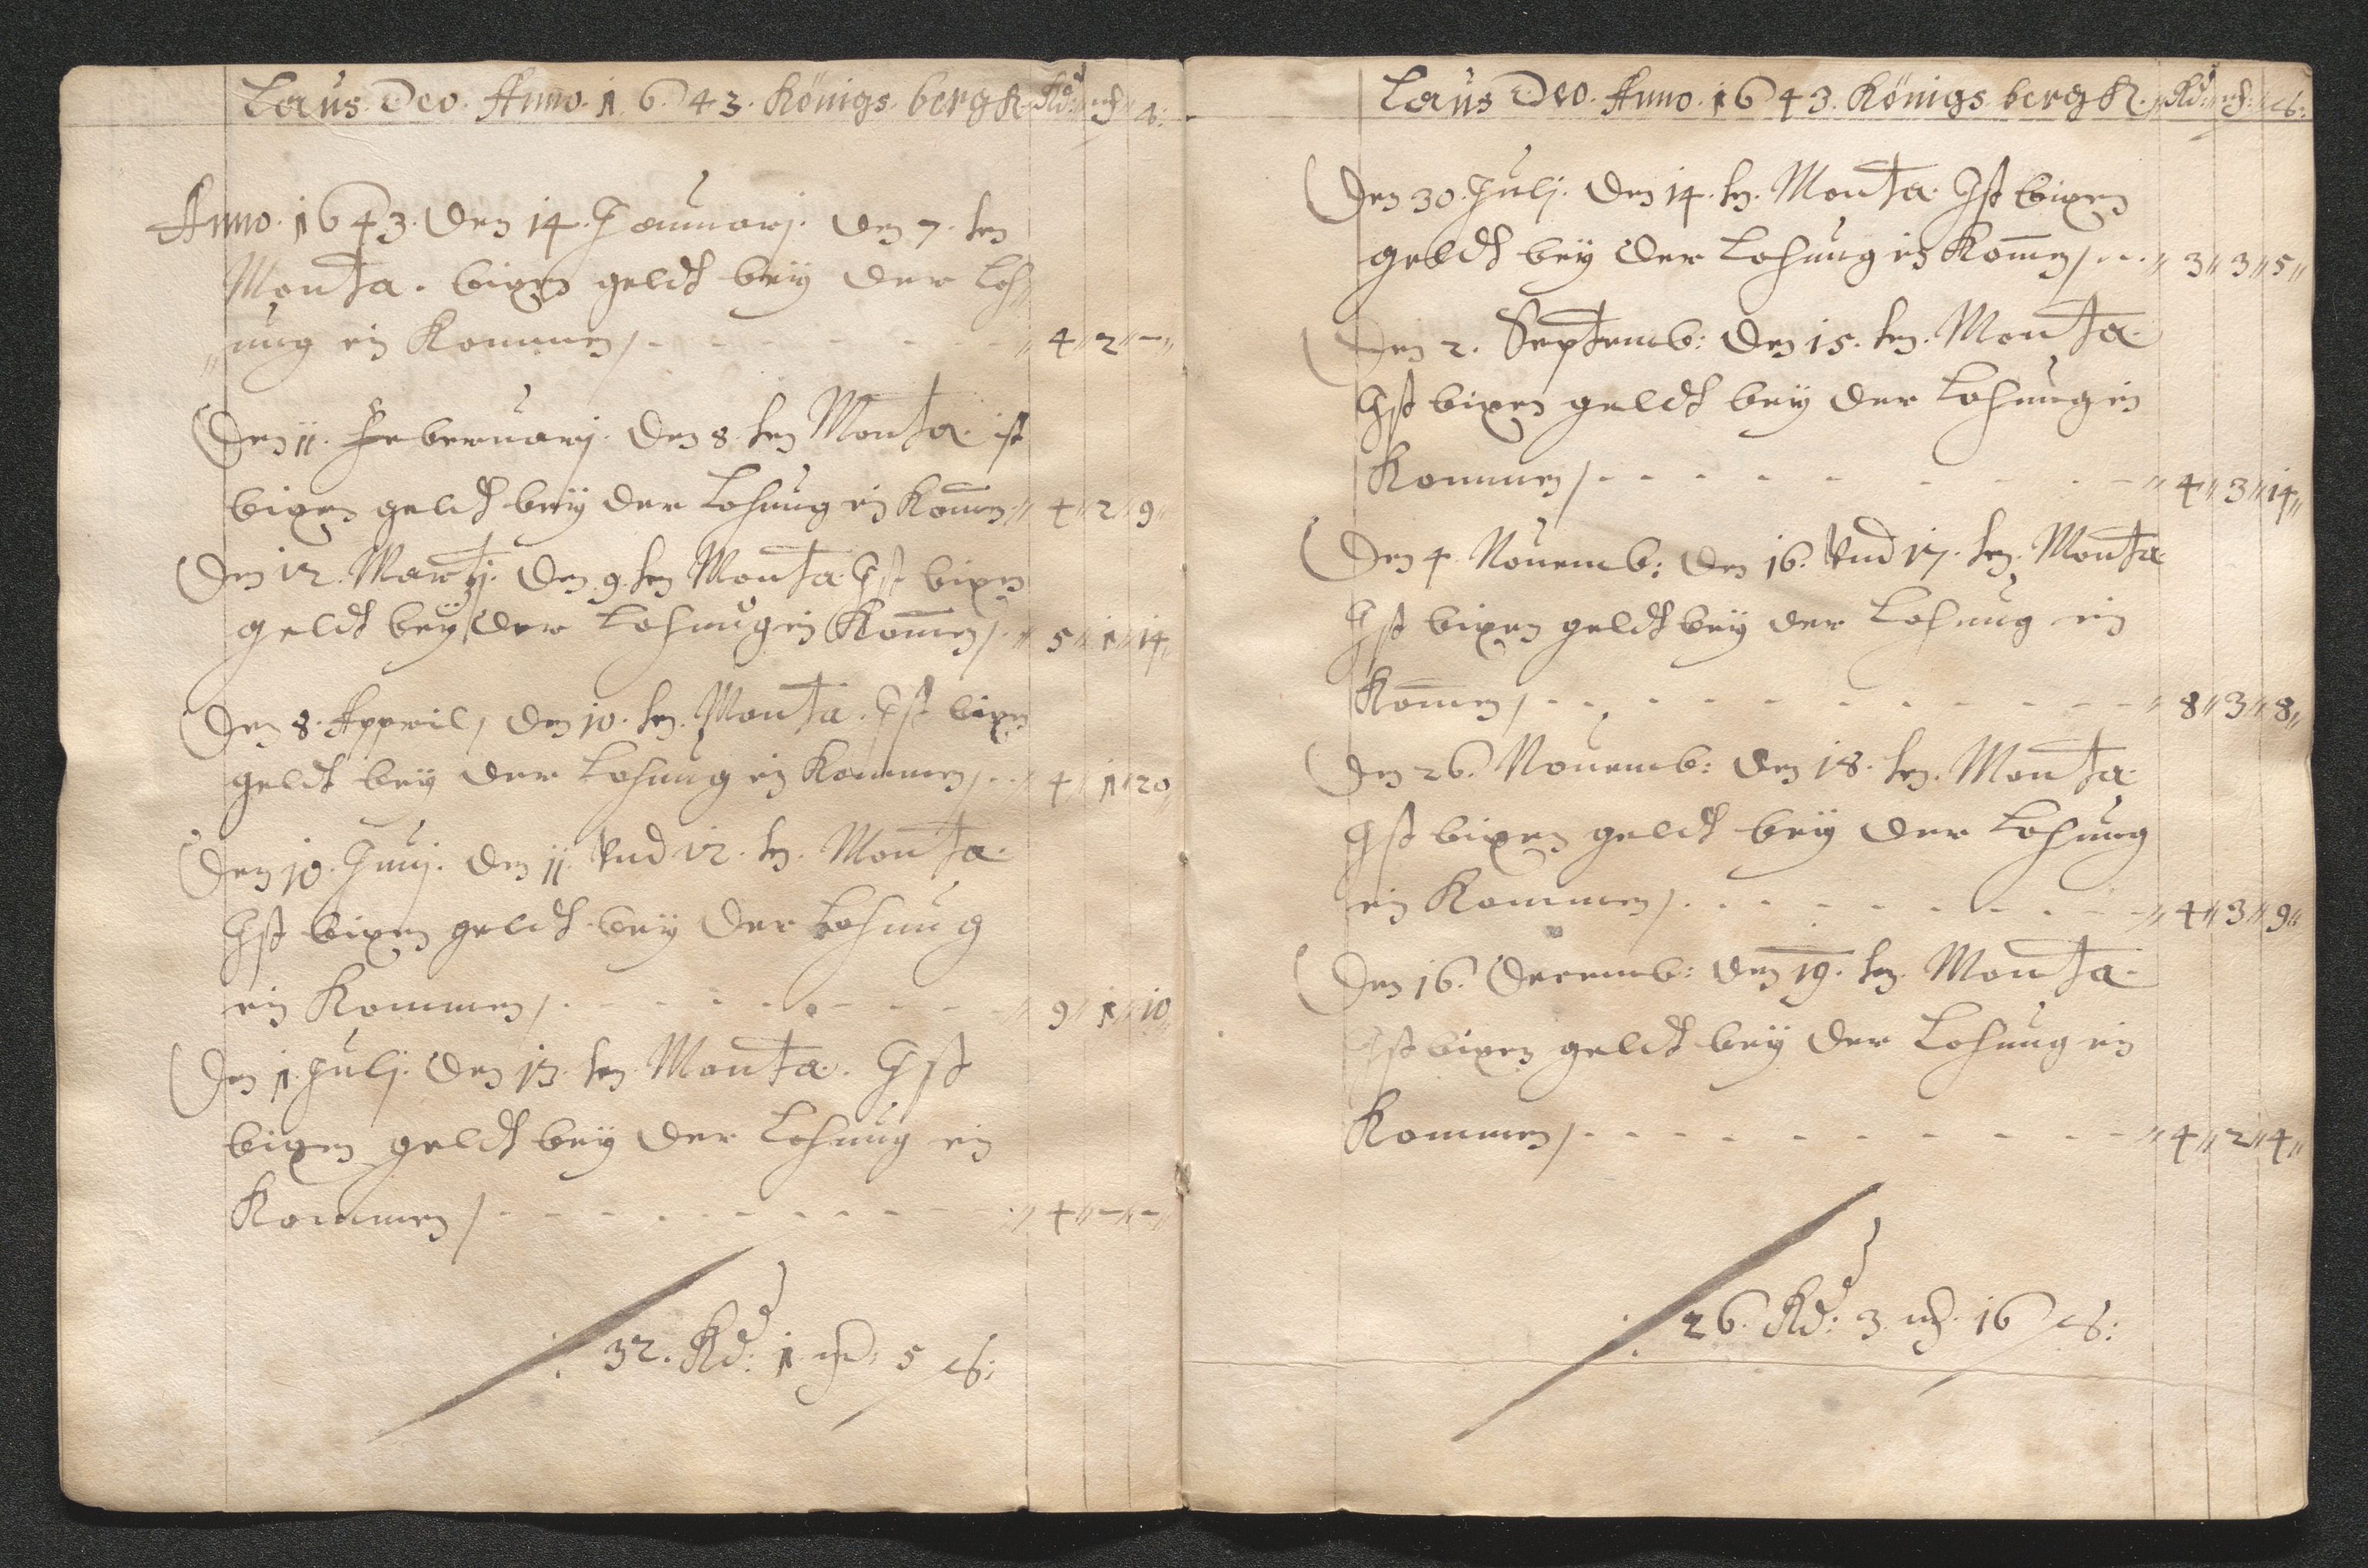 Laus. Deo. Anno. 1643. Königs. bergk Rd: m# ß:
Anno. 1643. Den 14. Januarj. Den 7. ten
Monta. bixen geldt bey der Loh„
„nung ein Kommen /. - - - „ 4 „ 2 „ - „
Den 11. Feberuarj. Den 8. ten Monta. ist
bixen geldt bey der Lohnung ein Kom̄en „ 4 „ 2 „ 9 „
Den 12. Martzj. Den 9. ten Monta. Ist bixen
geldt bey der Lohnung ein Kom̄en /. „ 5 „ 1 „ 14 „
Den 8. Appril, Den 10. ten. Monta. Ist bixen
geldt bey der Lohnung ein Kommen /. - „ 4 „ 1 „ 20 „
Den 10. Junj. Den 11. Vnd 12. ten. Monta.
Ist bixen geldt bey der Lohnung
ein Kommen /. - - - „ 9 „ 1 „ 10 „
Den 1. Julj. Den 13. ten Monta. Ist
bixen geldt bey der Lohnung ein
Kommen /. - - - „ 4 „ - „ - „
32. Rd: 1. m#: 5 ß:
Laus Deo. Anno. 1643. Königs. bergk. Rd: m#: ß:
Den 30. Julj. Den 14. ten. Monta. Ist bixen
geldt bey der Lohnung ein Kom̄en /. - - „ 3 „ 3 „ 5 „
Den 2. Septemb: Den 15. ten. Monta.
Ist bixen geldt bey der Lohnung ein
Kommen /. - - - „ 4 „ 3 „ 14 „
Den 4. Nouemb: Den 16. Vnd 17. ten. Monta.
Ist bixen geldt bey der Lohnung ein
Kom̄en /. - - - „ 8 „ 3 „ 8 „
Den 26. Nouemb: Den 18. ten. Monta.
Ist bixen geldt bey der Lohnung
ein Kommen /. - - - „ 4 „ 3 „ 9 „
Den 16. Decemb: Den 19. ten. Monta.
Ist bixen geldt bey der Lohnung ein
Kommen /. - - - „ 4 „ 2 „ 4 „
26. Rd: 3. m#. 16 ß: